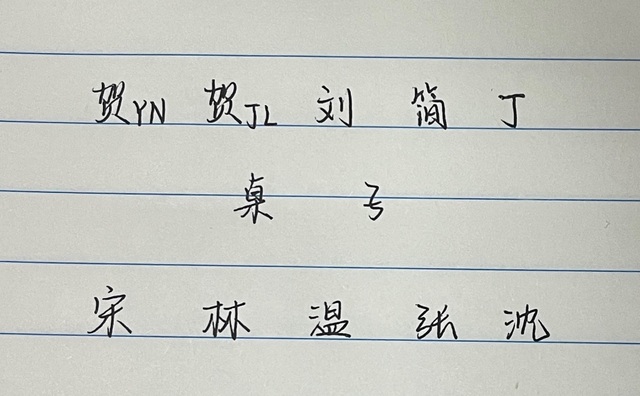 贺YN 贺JL 刘 简 丁
桌 号
宋 林 温 张 沈